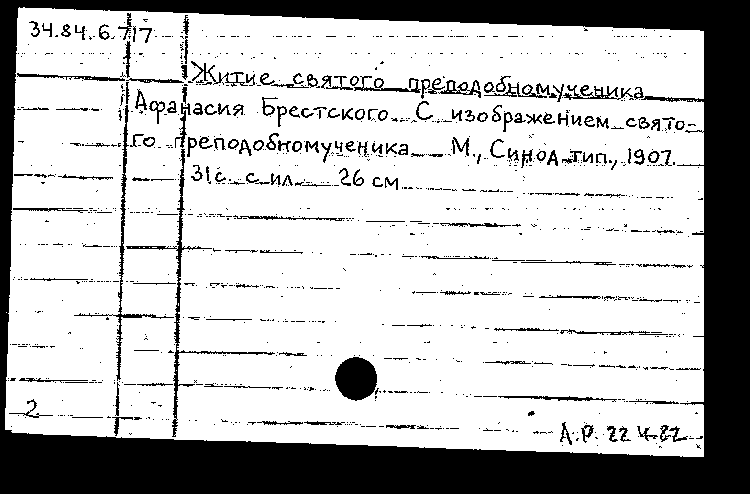 34.84.6.717
Житие святого преподобномученика
Афанасия Брестского. С изображением свято-
го преподобномученика М., Синод. тип., 1907.
31 с. с ил. 26 см
2
А.Р. 22 4-82